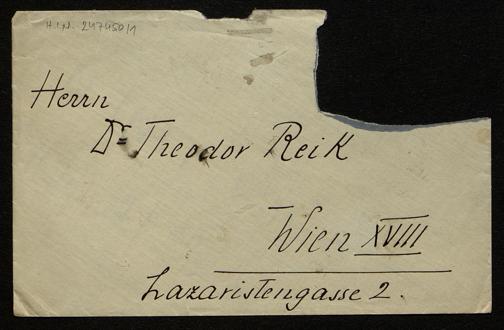 H.I.N. 247450/1
Herrn
Dr Theodor Reik
Wien XVIII
Lazaristengasse 2.